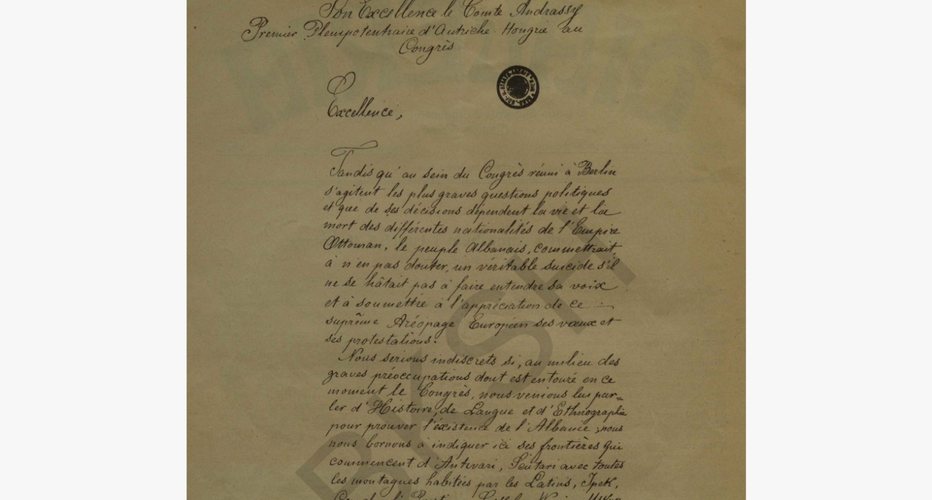 Son Excellence le Comte Andrassy
Premier Plenipotentiaire d'Autriche Hongrie au
Congrès
Excellence,
Tandis qu'au sein du Congrès réuni à Berlin
s'agitent les plus graves questions politiques
et que de ses décisions dépendent la vie et la
mort des différentes nationalités de l'Empire
Ottoman, le peuple Albanais, commettrait
à n'en pas douter, un véritable suicide s'il
ne se hâtait pas à faire entendre sa voix
et à soumettre à l'appréciation de ce
suprême Aréopage Européen ses vœux et
ses protestations.
Nous serions indiscrets si, au milieu des
graves préoccupations dont est entouré en ce
moment le Congrès, nous venions lui par-
ler d'Histoire, de Langue et d'Ethnographie
pour prouver l'existence de l'Albanie; nous
nous bornons à indiquer ici ses frontières qui
commencent d'Antivari, Scutari avec toutes
les montagnes habitées par les Latins, Ipek,